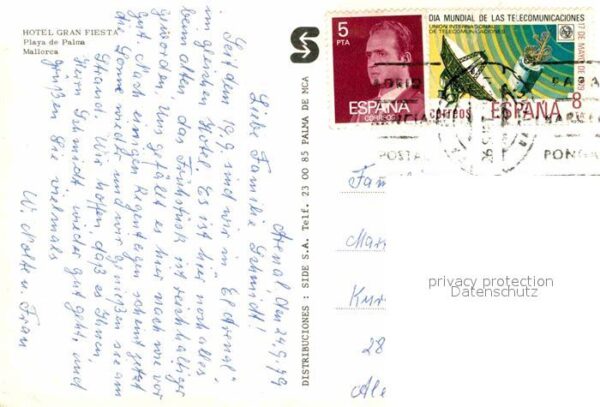 HOTEL GRAN FIESTA
Playa de Palma
Mallorca
Arenal, den 24.9.79
Liebe Familie Schmidt!
Seit dem 19.9. sind wir in "El Arenal",
im gleichen Hotel. Es ist hier noch alles
beim alten, das Frühstück ist reichhaltiger
geworden. Uns gefällt es hier nach wie vor
gut. Nach einigen Regentagen scheint jetzt
die Sonne wieder und wir genießen sie am
Strand. Wir hoffen, daß es Ihnen,
Herr Schmidt wieder gut geht, und
grüßen Sie vielmals
W. Nolte u. Frau
DISTRIBUCIONES : SIDE S.A. Telf. 23 00 85 PALMA DE MCA
S
5
PTA
ESPAÑA
CORREOS
DIA MUNDIAL DE LAS TELECOMUNICACIONES
UNION INTERNACIONAL
DE TELECOMUNICACIONES
17 DE MAYO DE 1979
CORREOS
ESPAÑA
8
POSTA
PONGA
Fam
Mar
Kur
28
Ale
privacy protection
Datenschutz